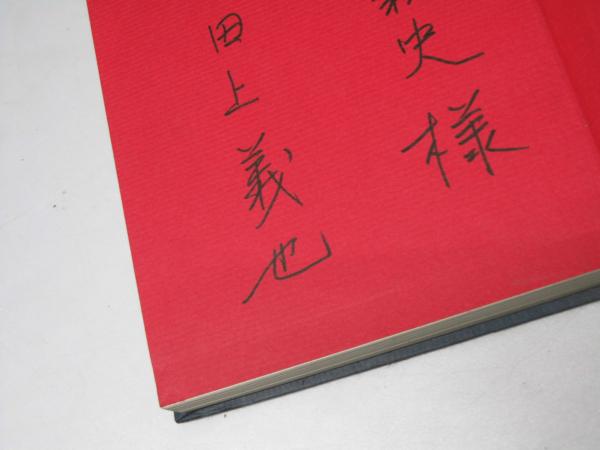 史様
田上義也